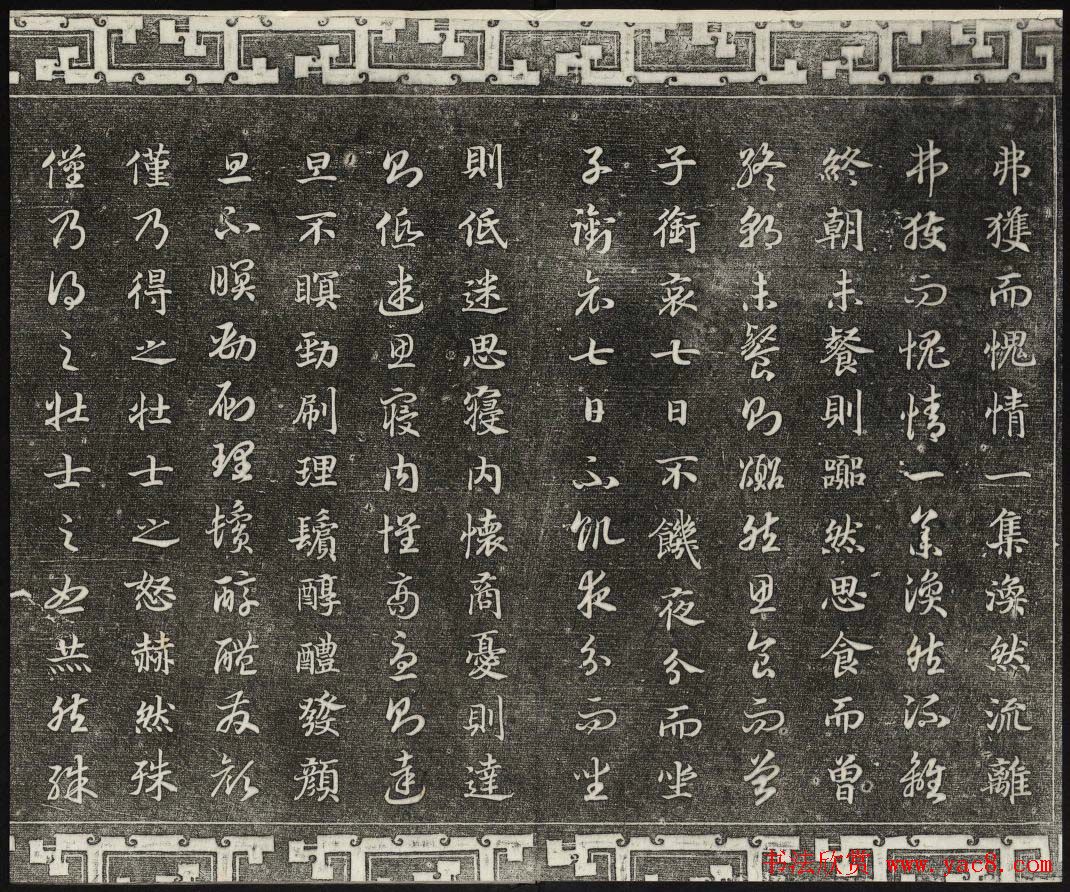 弗獲而愧情一集渙然流離
弗獲而愧情一集渙然流離
終朝未餐則囂然思食而曾
終朝未餐則囂然思食而曾
子銜哀七日不饑夜分而坐
子銜哀七日不飢夜分而坐
則低迷思寢內懷商憂則達
則低迷思寢內懷商憂則達
旦不瞑勁刷理鬢醇醴發顏
旦不瞑勁刷理鬢醇醴發顏
僅乃得之壯士之怒赫然殊
僅乃得之壯士之怒赫然殊
书法欣赏 www.yac8.com